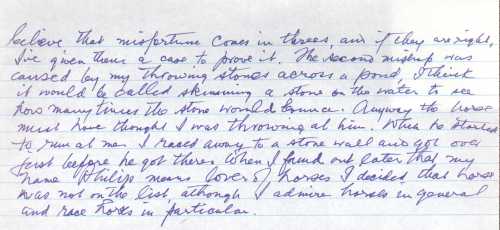 believe that misfortune comes in threes, and if they are right,
I've given them a case to prove it. The second mishap was
caused by my throwing stones across a pond, I think
it would be called skimming a stone on the water to see
how many times the stone would bounce. Anyway the horse
must have thought I was throwing at him. When he started
to run at me I raced away to a stone wall and got over
just before he got there. When I found out later that my
name Philip means lover of horses I decided that horse
was not on the list, although I admire horses in general
and race horses in particular.